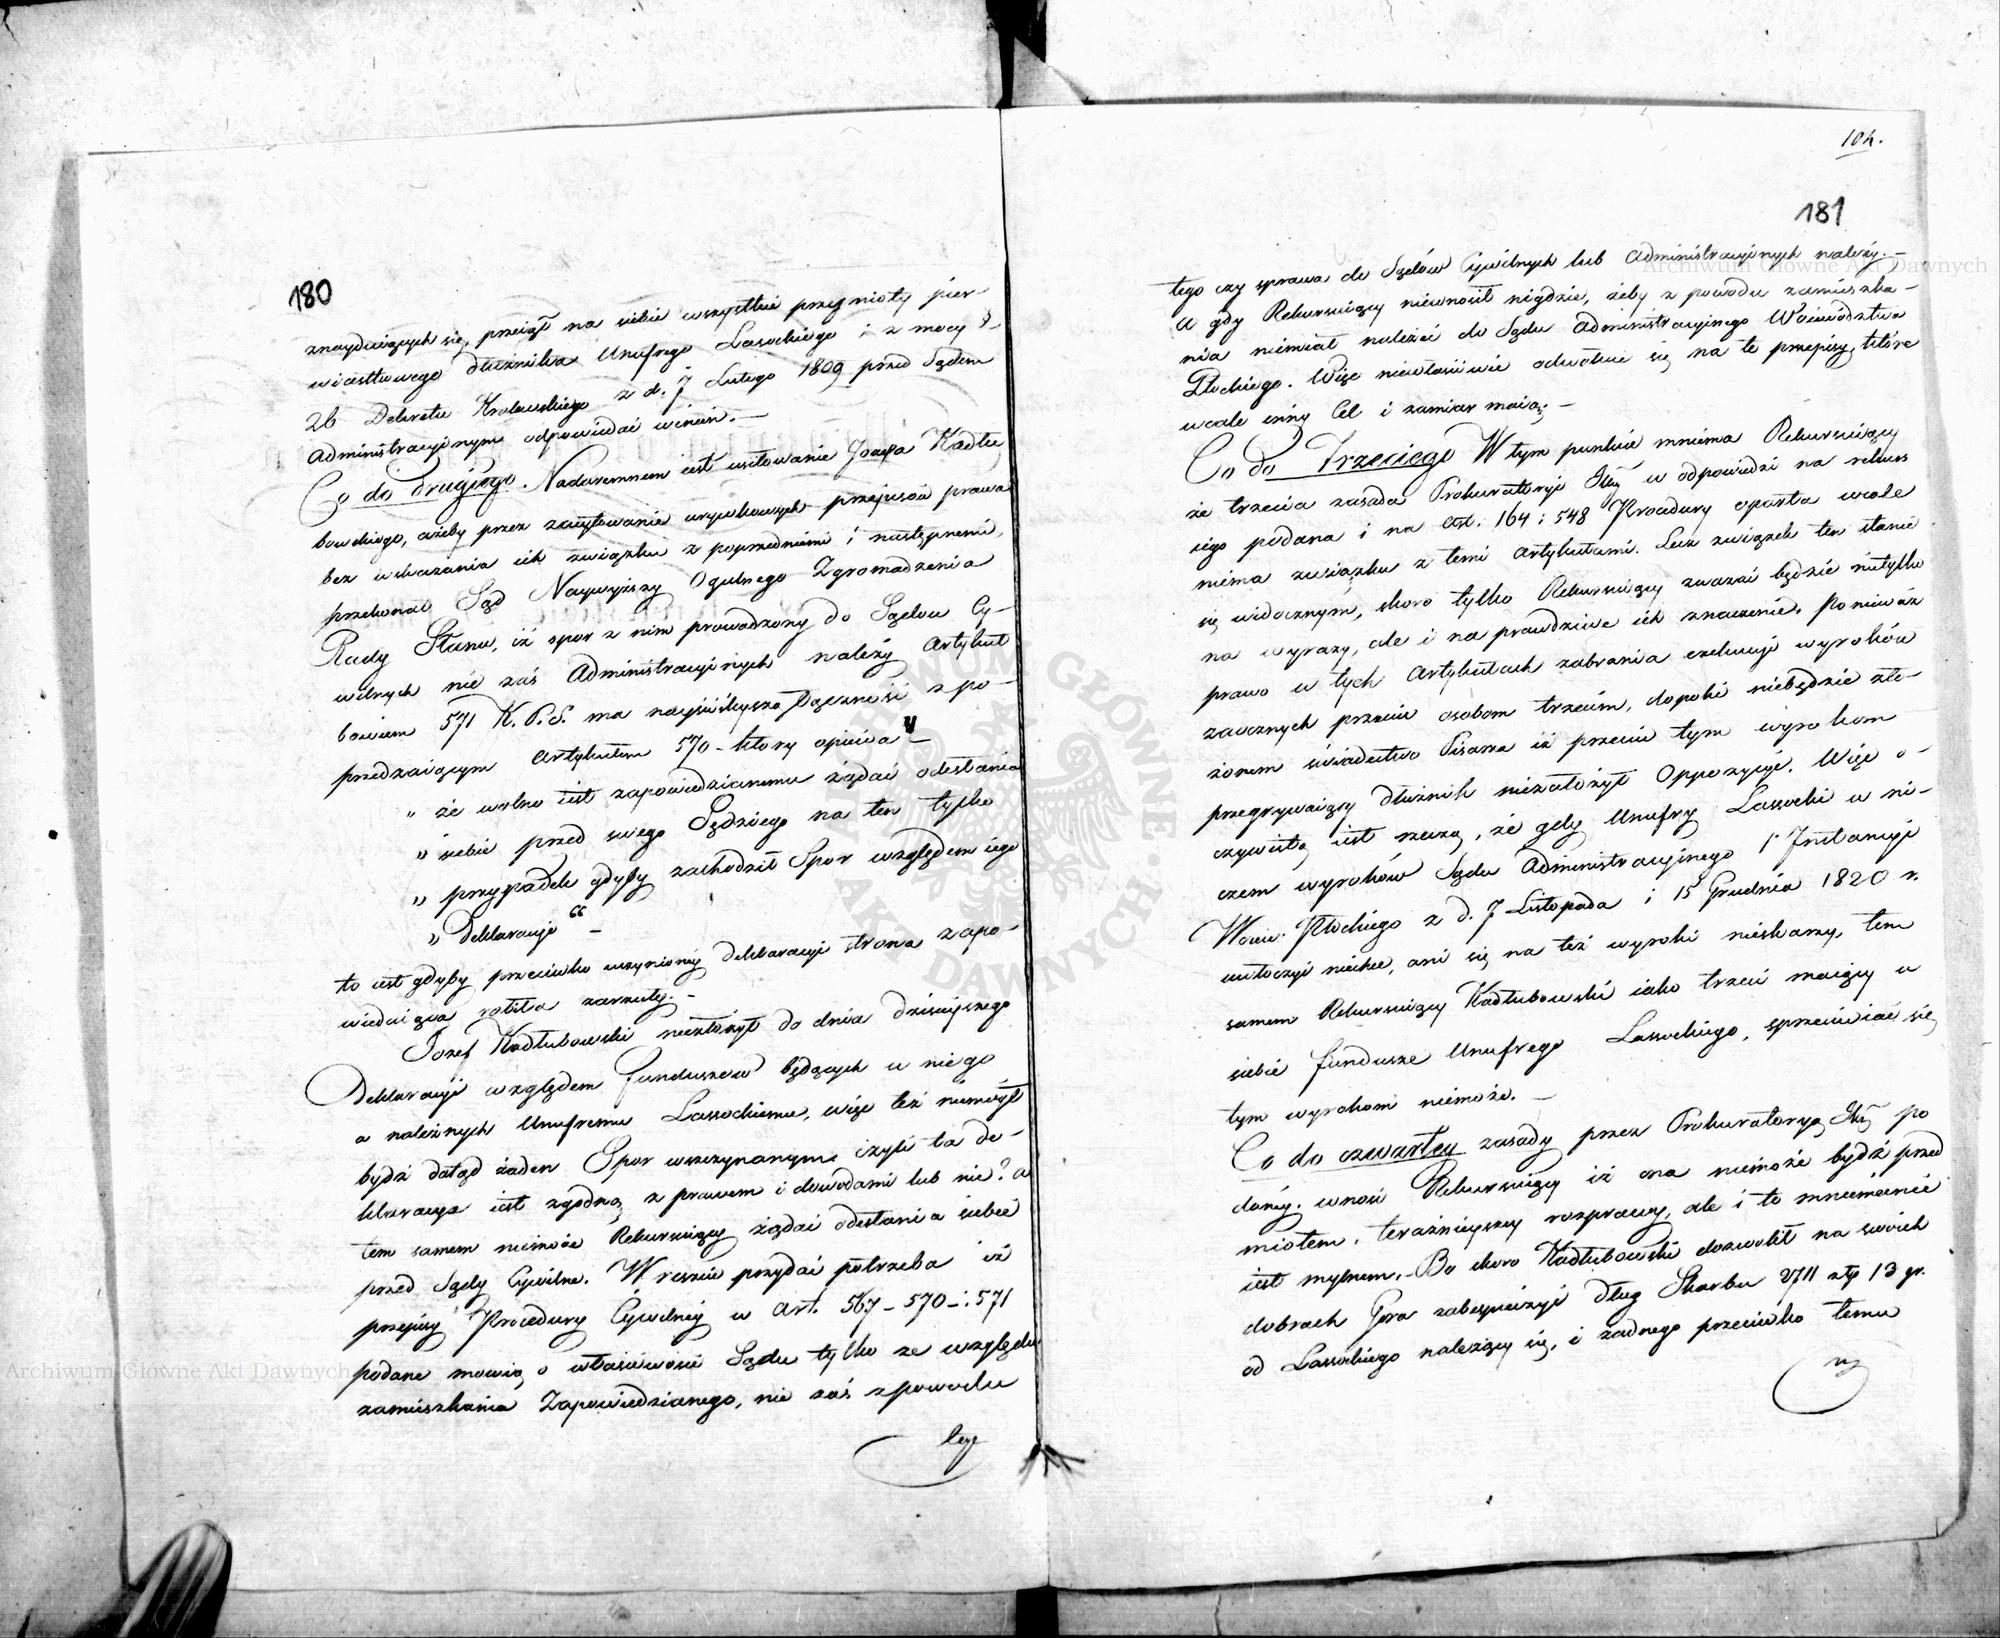 180
znayduiących się, przeiął na siebie wszystkie przymioty pier-
wiastkowego dłużnika Unufrego Lasockiego i z mocy §-
26 Dekretu Krolewskiego z d. 7 Lutego 1809 przed Sądem
Administracyinym odpowiadać winien. —
Co do Drugiego. Nadaremnem iest usiłowanie Jozefa Kadłu
bowskiego, ażeby przez zacytowanie urywkowych przepisów prawa
bez wskazania ich związku z poprzedniemi i następnemi,
przekonać Sąd Naywyższy Ogulnego Zgromadzenia
Rady Stanu, iż spor z nim prowadzony do Sądow Cy-
wilnych nie zaś Administracyinych należy Artykuł
bowiem 571 K. P. S. ma nayściśleyszą łączność z po-
przedzaiącym Artykułem 570 – ktory opiewa „ —
„ że wolno iest zapowiedzianemu żądać odesłania
„ siebie przed swego Sędziego na ten tylko
„ przypadek gdyby zachodził Spor względem iego
„ Deklaracyi “ —
to iest gdyby przeciwko uczynioney Deklaracyi strona zapo-
wiedaiąca robiła zarzuty. —
Jozef Kadłubowski niezłożył do dnia dzisieyszego
Deklaracyi względem funduszow będących u niego
a należnych Unufremu Lassockiemu, więc też niemógł
bydź dotąd żaden Spor wszczynanym czyli ta de-
klaracya iest zgodną z prawem i dowodami lub nie? a
tem samem niemoże Rekursuiący żądać odesłania siebie
przed Sądy Cywilne. W reszcie przydać potrzeba iż
przepisy Procedury Cywilney w Art. 567 – 570 – i 571
podane mowią o właściwości Sądu tylko ze względu
zamieszkania Zapowiedzianego, nie zaś z powodu
tego
104.
181
tego czy sprawa do Sądów Cywilnych lub Administracyinych należy. —
A gdy Rekursuiący niewnosił nigdzie, żeby z powodu zamieszka-
nia niemiał należeć do Sądu Administracyinego Woiewództwa
Płockiego. Więc niewłaściwie odwołuie się na te przepisy, które
wcale inny Cel i zamiar maią. —
Co do Trzeciego W tym punkcie mniema Rekursuiący
że trzecia zasada Prokuratoryi w odpowiedzi na rekurs
iego podana i na Art. 164 i 548 Procedury oparta wcale
niema związku z temi Artykułami. Lecz związek ten stanie
się widocznym, skoro tylko Rekursuiący zważać będzie nietylko
na wyrazy, ale i na prawdziwe ich znaczenie. Ponieważ
prawo w tych Artykułach zabrania exekucyi wyroków
zaocznych przeciw osobom trzecim, dopoki niebędzie zło-
żonem świadectwo Pisarza iż przeciw tym wyrokom
przegrywaiący dłużnik niezałożył Oppozycyi. Więc o-
czywistą iest rzeczą, że gdy Unufry Lassocki w ni-
czem wyroków Sądu Administracyinego 1. Instancyi
Woiew. Płockiego z d. 7 Listopada i 15 Grudnia 1820 r.
uwłoczyć niechce, ani się na też wyroki nieskarzy, tem
samem Rekursuiący Kadłubowski iako trzeci maiący u
siebie fundusze Unufrego Lassockiego, sprzeciwiać się
tym wyrokom niemoże. —
Co do czwartey zasady przez Prokuratoryą po
daney. wnosi Rekursuiący iż ona niemoże bydź przed
miotem, teraźnieyszey rozprawy, ale i to mniemanie
iest mylnem. – Bo skoro Kadłubowski dozwolił na swoich
dobrach Gora zabespieczyć dług Skarbu 2711 złp 13 gr.
od Lassockiego należący się, i żadnego przeciwko temu